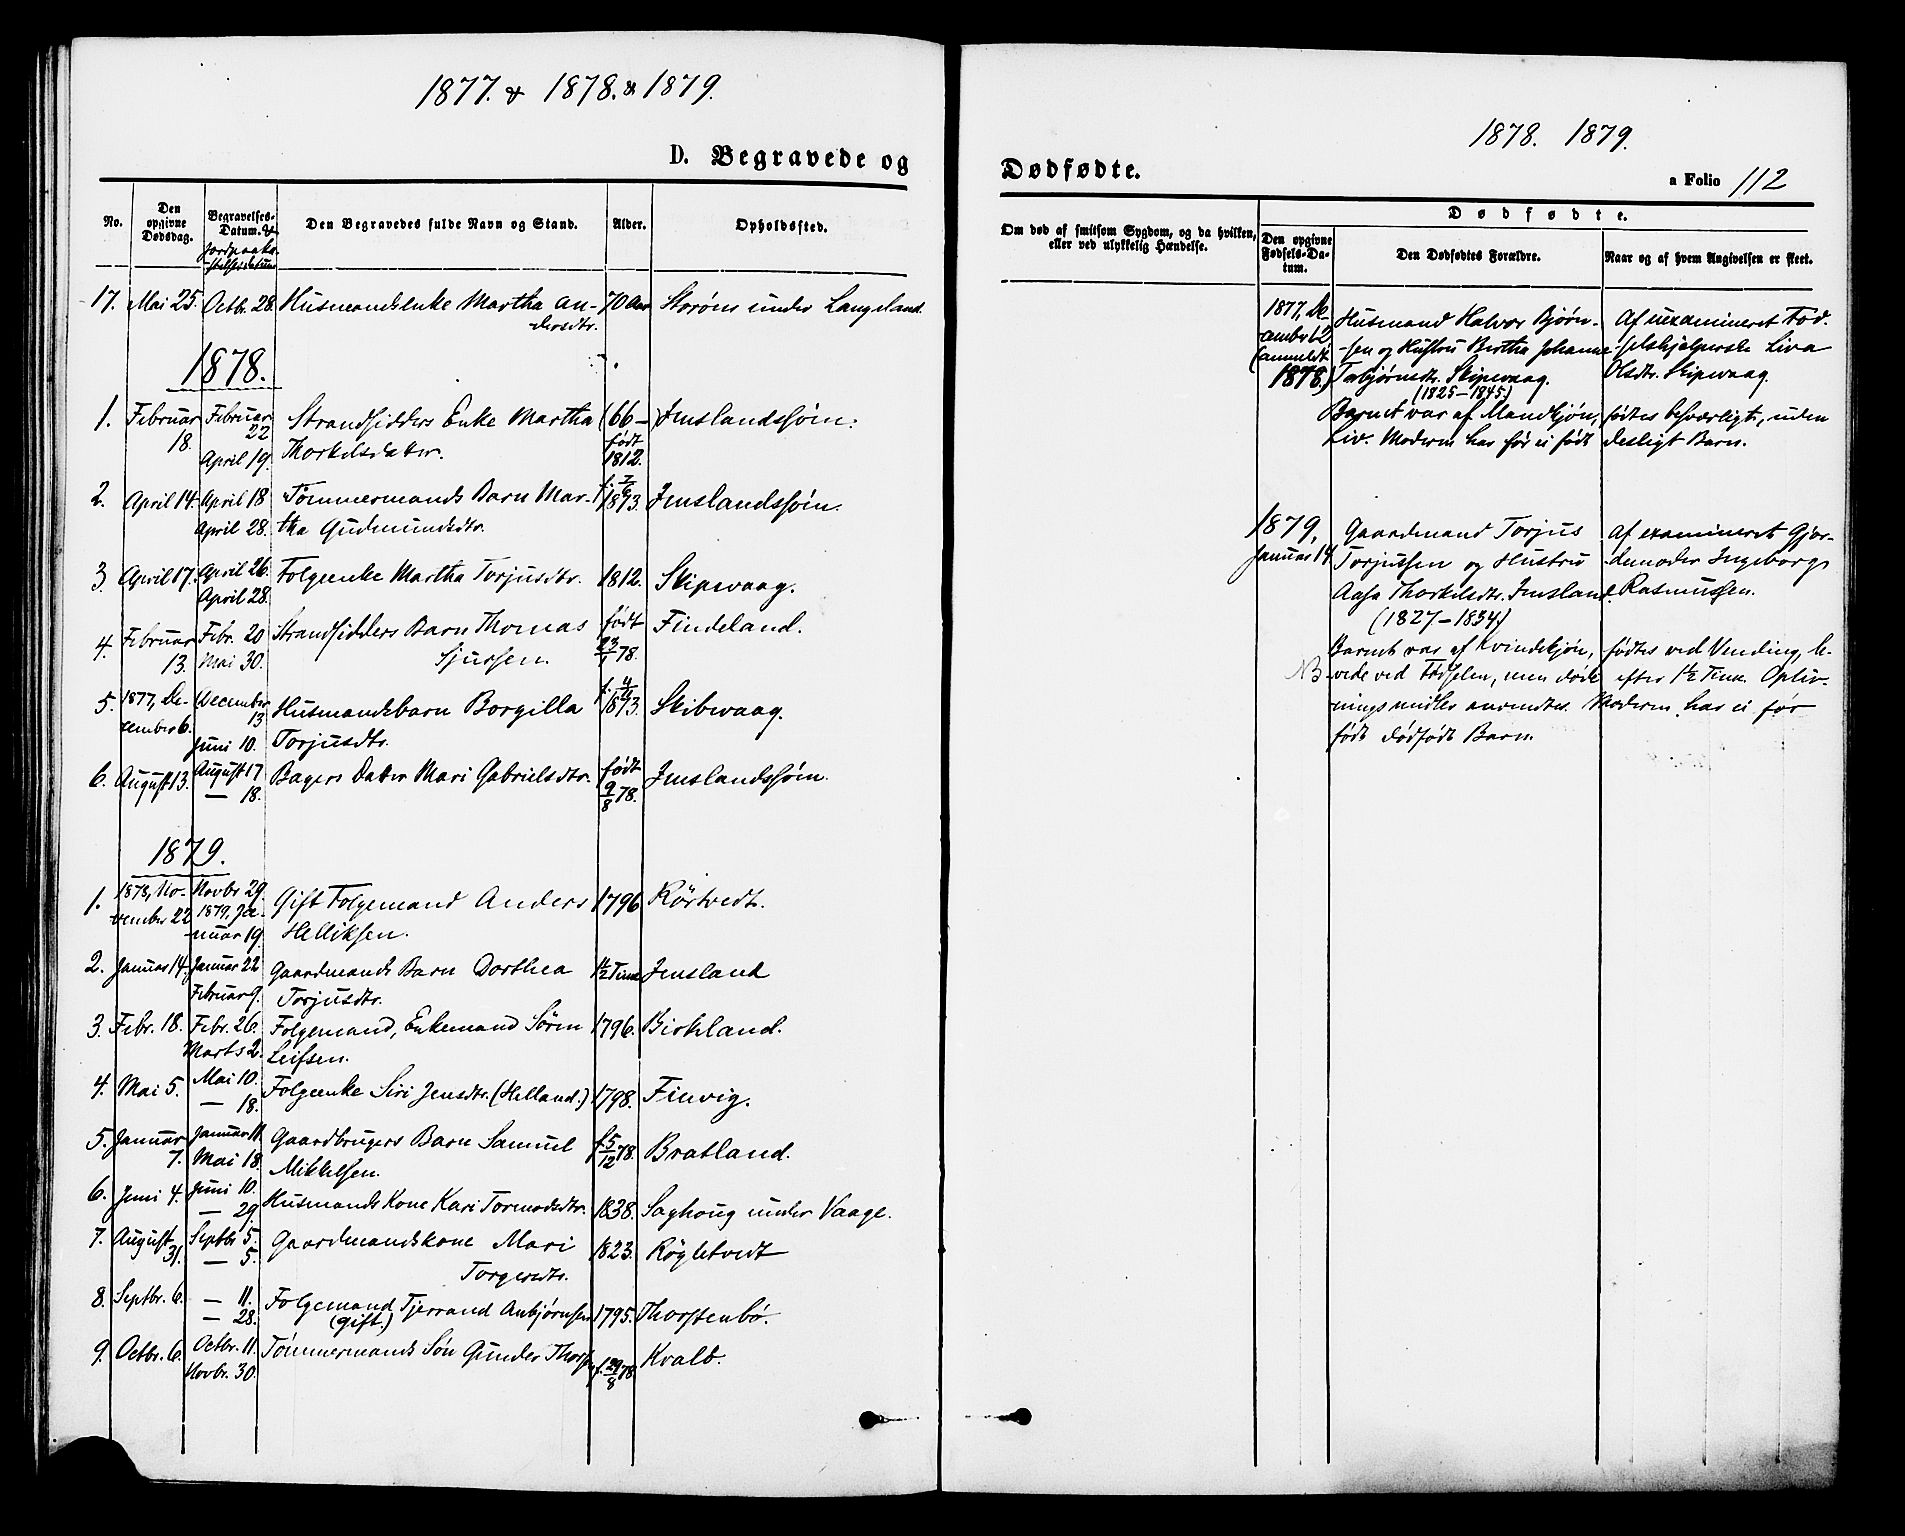 1877. & 1878. & 1879.
D. Begravede og
No.
Den opgivne Dødsdag.
Begravelses-Datum. & Jordpaakastelsesdatum
Den Begravedes fulde Navn og Stand.
Alder.
Opholdssted.
17. Mai 25. Octbr. 28. Husmandsenke Martha An- 70 Aar Storøen under Langeland.
dersdtr.
1878.
1. Februar Februar Strandsidders Enke Martha (66 – Imslandssjøen.
18. 22 Thorkilsdatter. født
April 19. 1812.
2. April 14. April 18 Tømmermands Barn Mar- f. 7/6 Imslandssjøen.
April 28. tha Gudmundsdtr. 1873.
3 April 17. April 26. Folgeenke Martha Torjusdtr. 1812. Skipevaag.
April 28.
4. Februar Febr. 20 Strandsidders Barn Thomas født Findeland.
13. Mai 30. Sjursen. 23/1 78.
5. 1877, De- December Husmandsbarn Borgilla f. 4/9 Skibevaag.
cember 6. 13 Torjusdtr. 1873.
Juni 10.
6. August 13. August 17 Bagers Datter Mari Gabrielsdtr. født Imslandssjøen.
— 18. 9/8 78.
1879.
1. 1878, No- Novbr 29. Gift Folgemand Anders 1796 Rørtvedt.
vember 22 1879, Ja- Helliksen.
nuar 19.
2. Januar 14. Januar 22 Gaardmands Barn Dorthea 1½ Time Imsland
Februar 9. Torjusdtr.
3. Febr. 18. Febr. 26. Folgemand, Enkemand Søren 1796. Birkeland.
Marts 2. Leifsen.
4. Mai 5. Mai 10. Folgeenke Siri Jensdtr. (Helland.) 1798. Finvig.
— 18.
5. Januar Januar 11. Gaardbrugers Barn Samuel f. 5/12 78. Bratland.
7. Mai 18. Mikkelsen.
6. Juni 4. Juni 10. Husmands Kone Kari Tormodsdtr. 1838. Saghoug under Vaage.
— 29.
7. August Septbr 5. Gaardmandskone Mari 1823. Røgletvedt
31. — 5. Torgersdtr.
8. Septbr. 6. — 11. Folgemand Tjerrand Anbjørnsen 1795. Thorstenbø.
— 28. (gift.)
9. Octbr. 6. Octbr. 11. Tømmermands Søn Gunder Thorsen f. 29/8 78. Kvalb.
Novbr. 30.
1878. 1879.
Dødfødte.
a Folio 112
Om død af smitsom Sygdom, og da hvilken,
eller ved ulykkelig Hændelse.
Dødfødte.
Den opgivne Fødsels-Datum.
Den Dødfødtes Forældre.
Naar og af hvem Angivelsen er skeet.
1877, De- Husmand Halvor Bjørn- Af uexamineret Fød-
cember 12 -sen og Hustru Bertha Johanne -selshjelperske Liva
(anmeldt Torbjørnsdtr. Skipevaag. Olsdtr. Skipevaag.
1878.) (1825–1845)
Barnet var af Mandkjøn, fødtes besværligt, uden
Liv. Moderen har før ei født desligt Barn.
1879, Gaardmand Torjus Af examineret Gjor-
Januar 14 Torjussen og Hustru demoder Ingeborg
Aasa Thorkilsdtr. Imsland. Rasmussen.
(1827–1834)
Barnet var af Kvindekjøn, fødtes ved Vending, le-
NB vede ved Fødselen, men døde efter 1½ Time. Opliv-
ningsmidler anvendtes. Moderen har ei før
født dødfødt Barn.